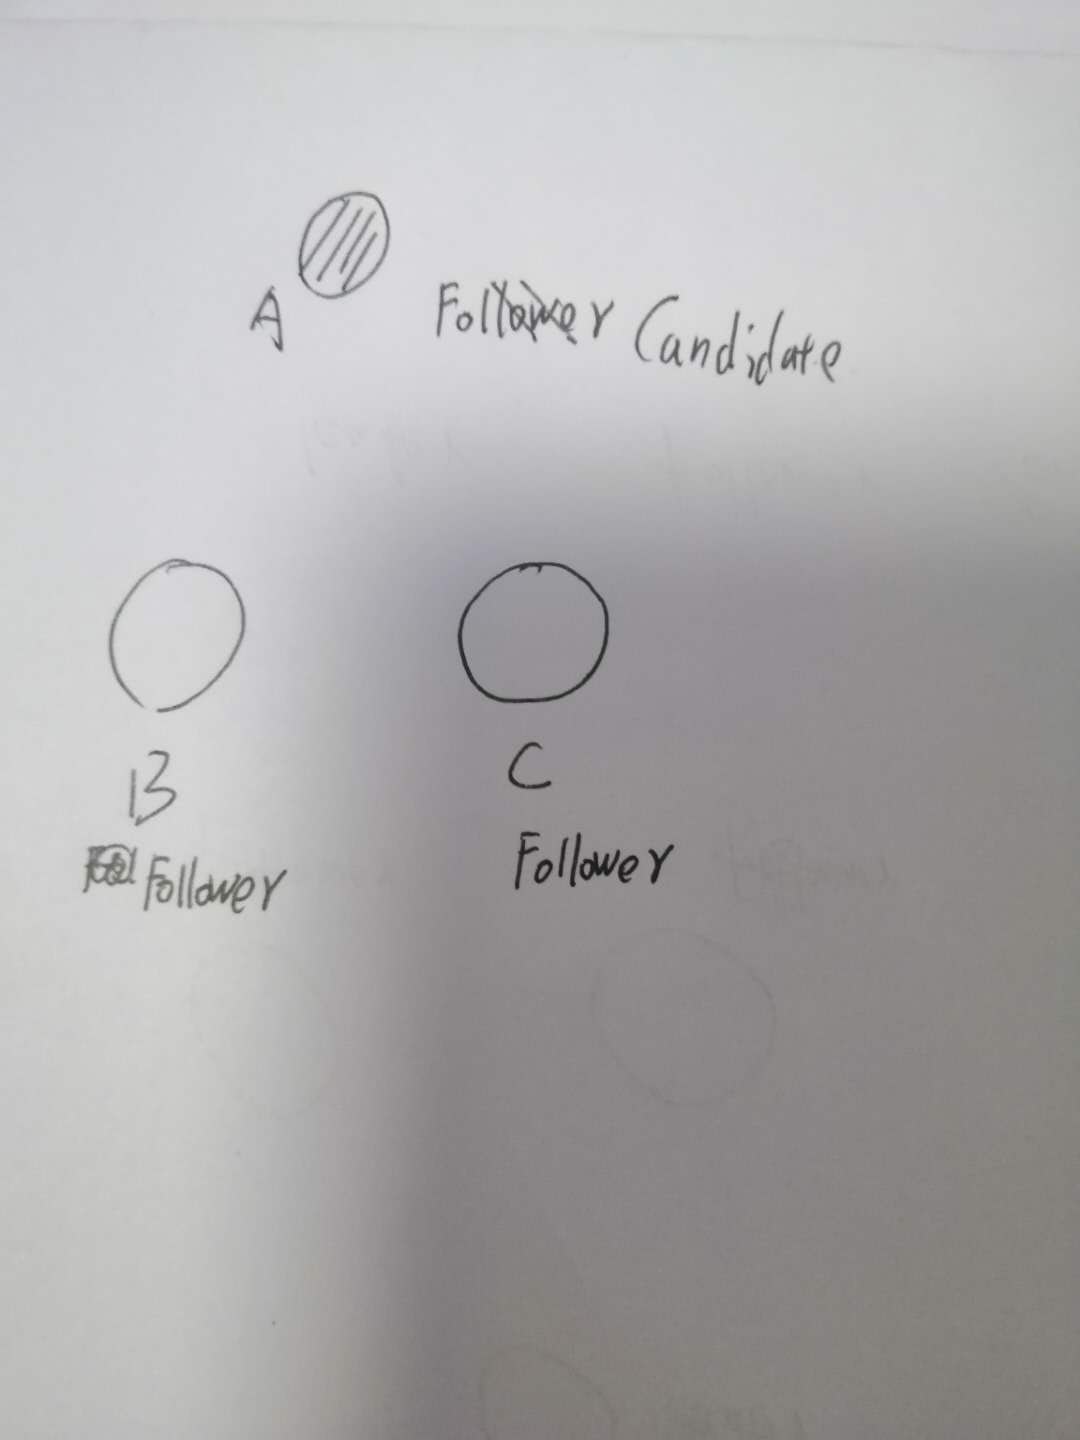 A
Follower Candidate
B
C
Follower
Follower